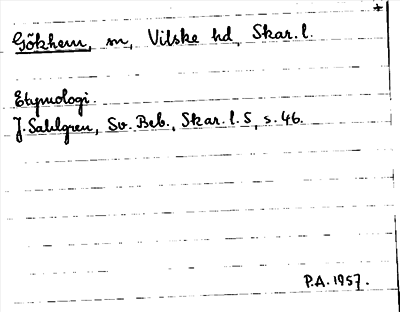 Gökhem, sn, Vilske hd, Skar. l.
Etymologi.
J. Sahlgren, Sv. Beb., Skar. l. 5, s. 46.
P.A. 1957.